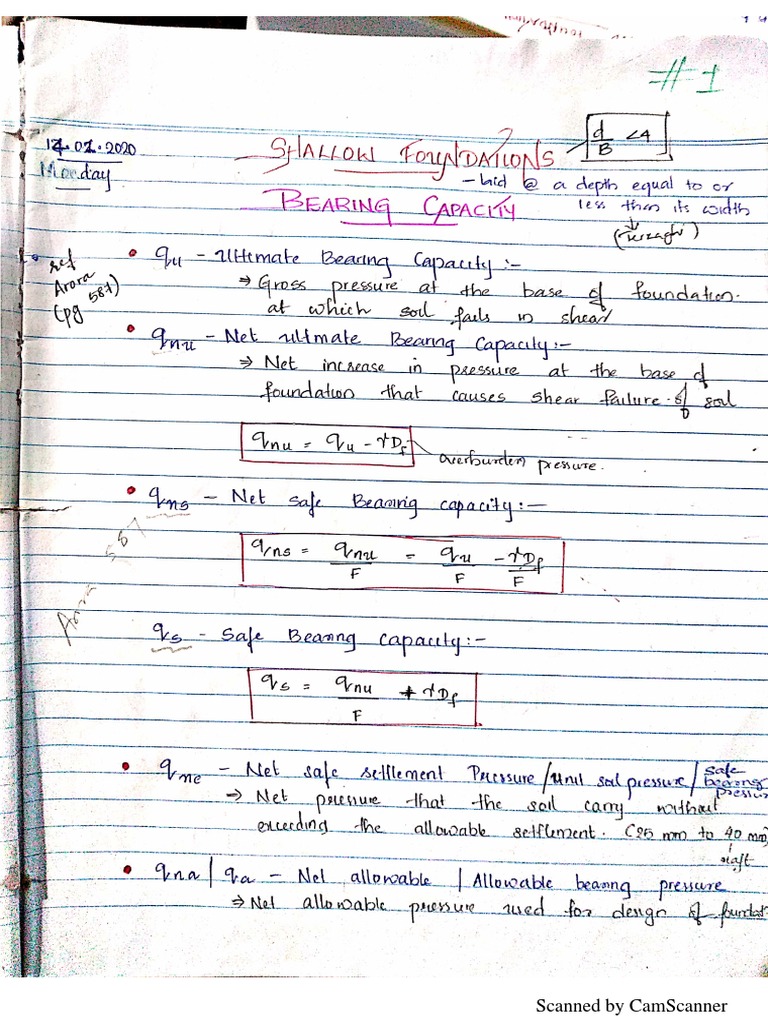 #1
d/B <4
SHALLOW FOUNDATIONS
- laid @ a depth equal to or
less than its width
(Terzaghi)
Monday
BEARING CAPACITY
ref
Arora
(pg 587)
• qu - Ultimate Bearing Capacity :-
⇒ Gross pressure at the base of foundation.
at which soil fails in shear
• qnu - Net ultimate Bearing Capacity:-
⇒ Net increase in pressure at the base of
foundation that causes shear failure of soil
qnu = qu - γDf
overburden pressure.
• qns - Net safe Bearing capacity:-
Arora 587
qns = qnu/F = qu/F - γDf/F
qs - Safe Bearing Capacity:-
qs = qnu/F + γDf
• qne - Net safe settlement Pressure/Unit soil pressure/safe bearing pressur
⇒ Net pressure that the soil carry without
exceeding the allowable settlement. (25 mm to 40 mm)
raft
• qna | qa - Net allowable | Allowable bearing pressure
⇒ Net allowable pressure used for design of foundat
Scanned by CamScanner